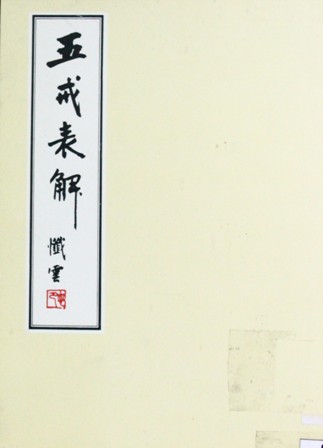 五戒表解
懺雲